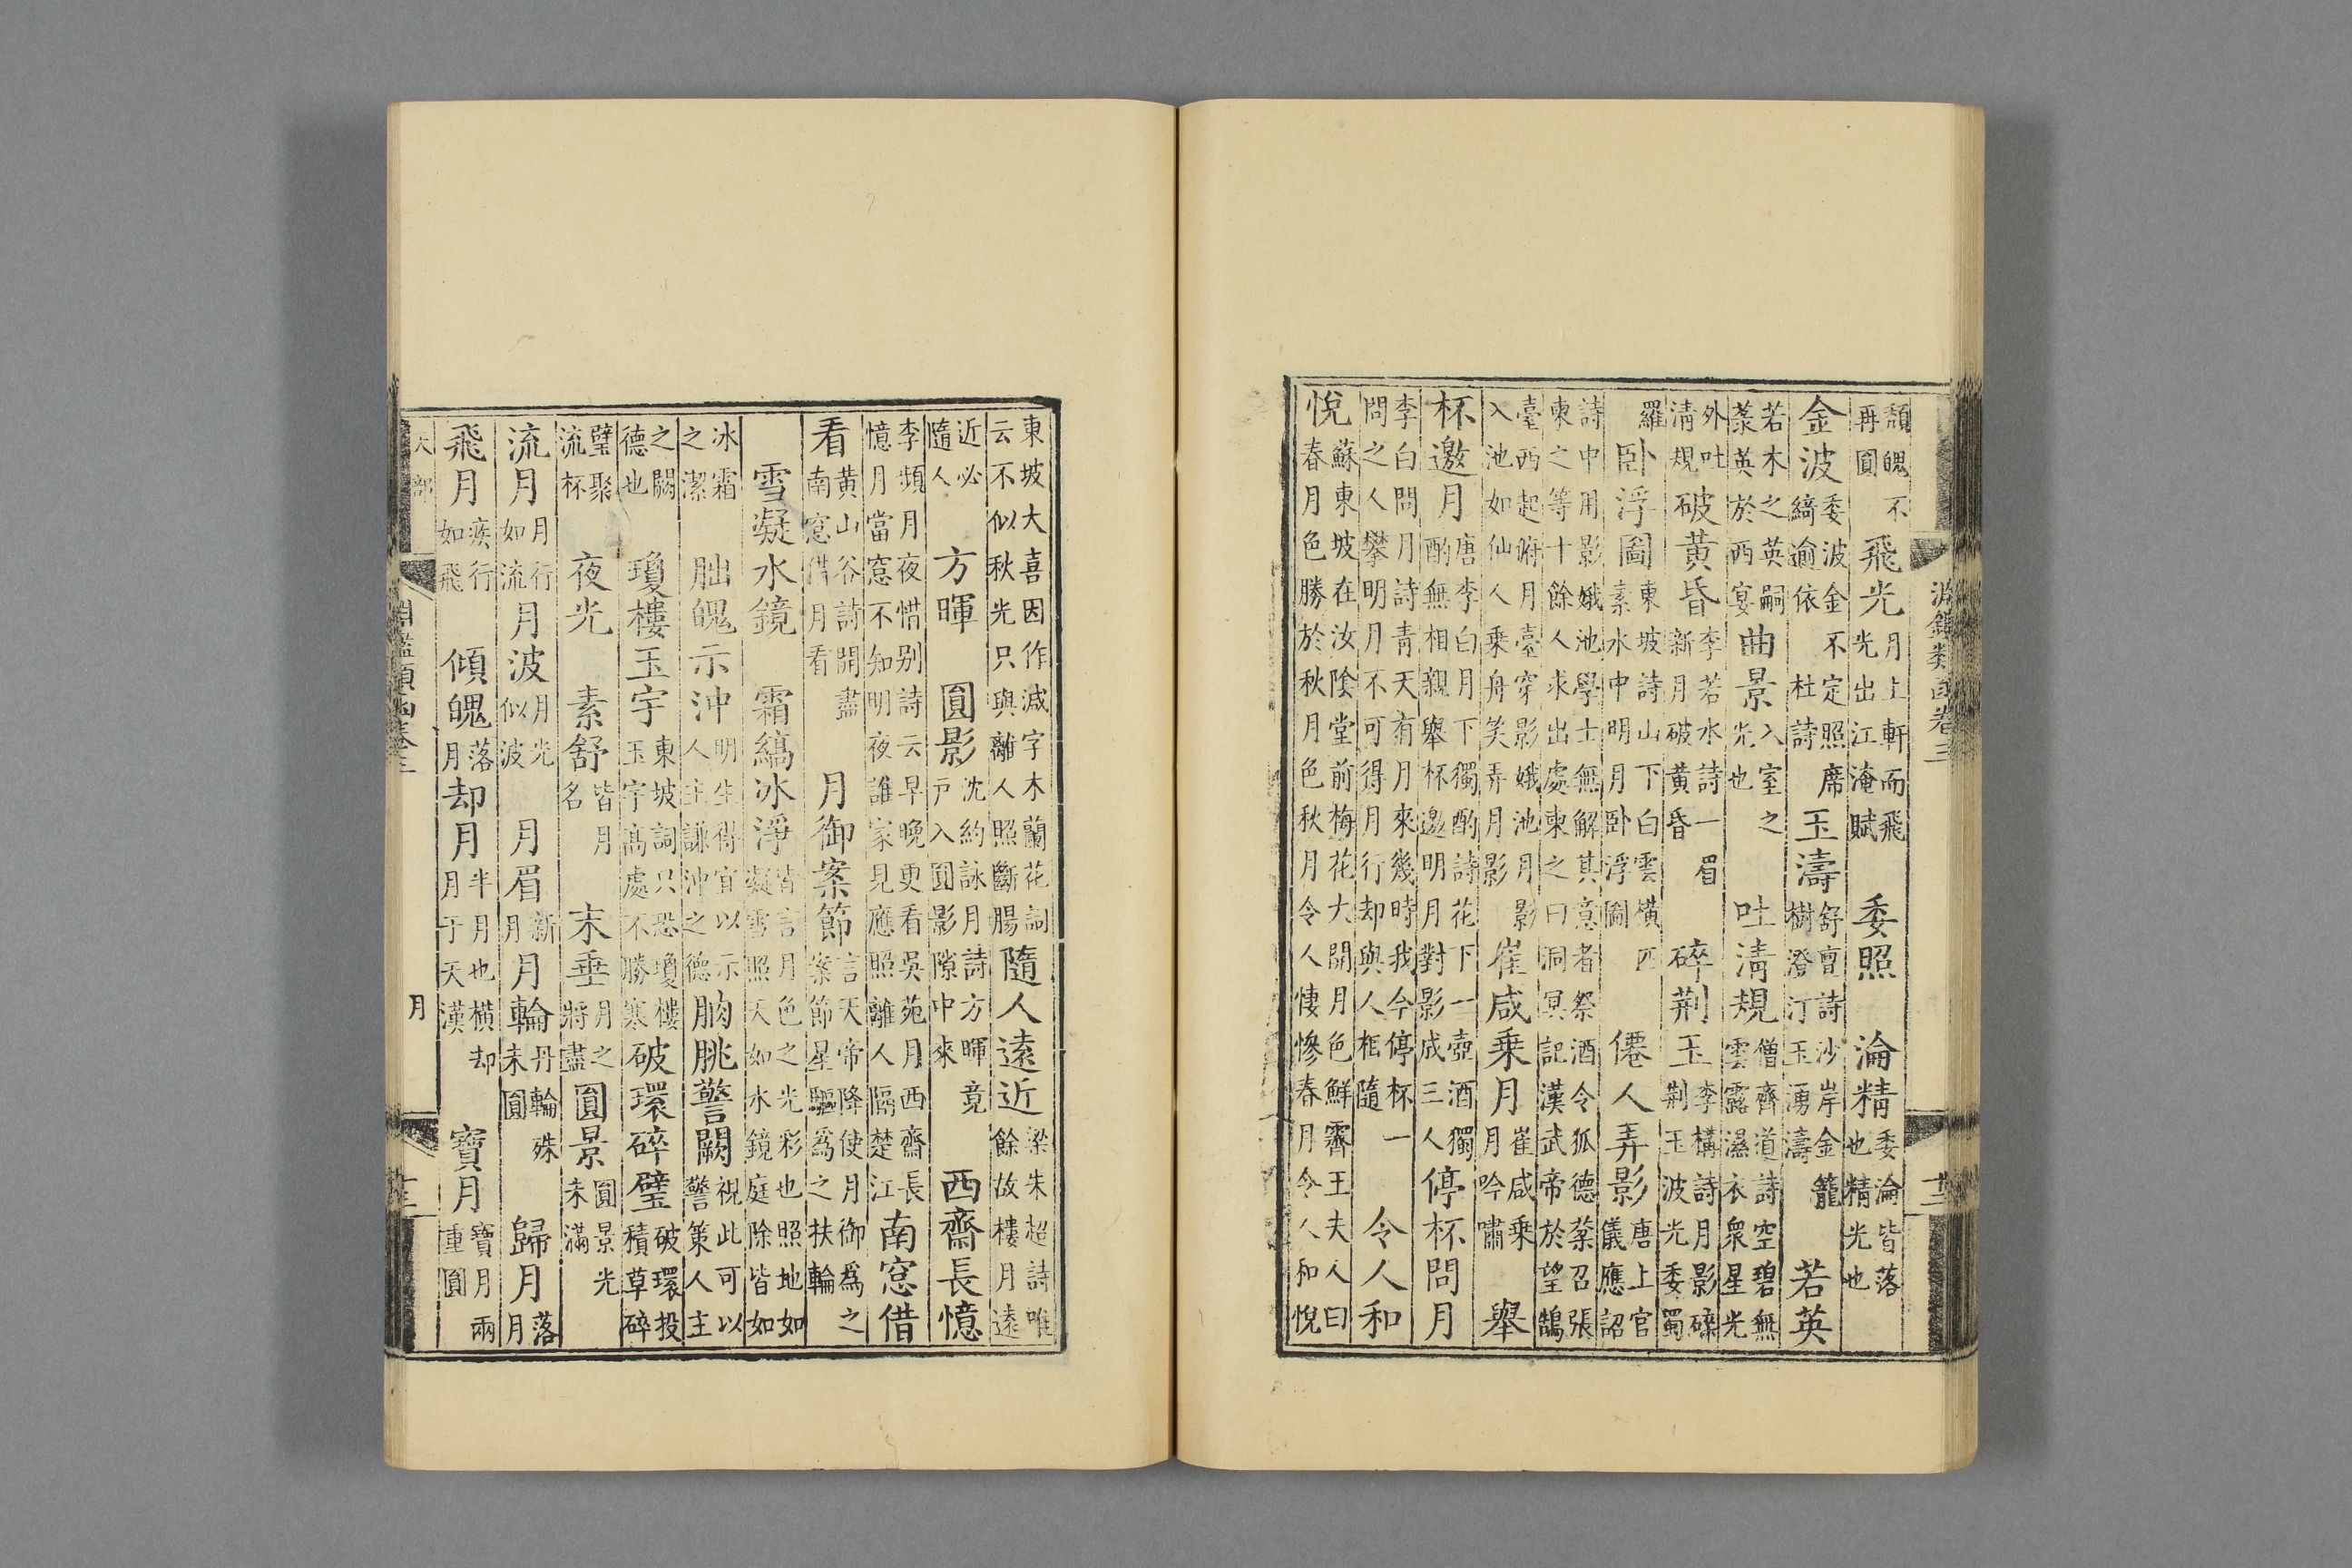 淵鑑類函卷三
頹魄不再圓飛光月上軒而飛光出江淹賦委照淪精委淪皆落也精光也
金波委波金不定照席綺逾依杜詩玉濤舒亶詩沙岸金籠樹澄汀玉湧濤若英
若木之英嗣蘂英於西宴曲景入室之光也吐清規僧齊道詩空碧無雲露濕衣衆星光
外吐清規破黃昏李若水詩一眉新月破黃昏碎荆玉李構詩月影碎荆玉波光委蜀
羅卧浮圖東坡詩山下白雲橫匹素水中明月卧浮圖僊人弄影唐上官儀應詔
詩中用影娥池學士無解其意者祭酒令狐德棻召張柬之等十餘人求出處柬之曰洞冥記漢武帝於望鵠
臺西起俯月臺穿影娥池月影入池如仙人乘舟笑弄月影崔咸乘月崔咸乘月吟嘯舉
杯邀月唐李白月下獨酌詩花下一壺酒獨酌無相親舉杯邀明月對影成三人停杯問月
李白問月詩青天有月來幾時我今停杯一問之人攀明月不可得月行却與人相隨令人和
悅蘇東坡在汝陰堂前梅花大開月色鮮霽王夫人曰春月色勝於秋月色秋月令人悽慘春月令人和悅
東坡大喜因作減字木蘭花詞云不似秋光只與離人照斷腸隨人遠近梁朱超詩唯餘故樓月遠
近必隨人方暉圓影沈約詠月詩方暉竟戶入圓影隙中來西齋長憶
李頻月夜惜别詩云早晚更看吳苑月西齋長憶月當窓不知明夜誰家見應照離人隔楚江南窓借
看黃山谷詩開盡南窓借月看月御案節言天帝降使月御爲之案節星驅爲之扶輪
雪凝水鏡霜縞冰淨皆言月色之光彩也照地如凝雪照天如水鏡庭除皆如
冰霜之潔朏魄示沖明生得宜以示人主謙沖之德朒朓警闕視此可以警策人主
之闕德也瓊樓玉宇東坡詞只恐瓊樓玉宇高處不勝寒破環碎璧破環投積草碎
璧聚流杯夜光素舒皆月名末垂月之將盡圓景圓景光未滿
流月月行如流月波月光似波月眉新月月輪丹輪殊未圓歸月落月
飛月疾行如飛傾魄落月却月半月也橫却月于天漢寶月寶月兩重圓
天部 淵鑑類函卷三 月